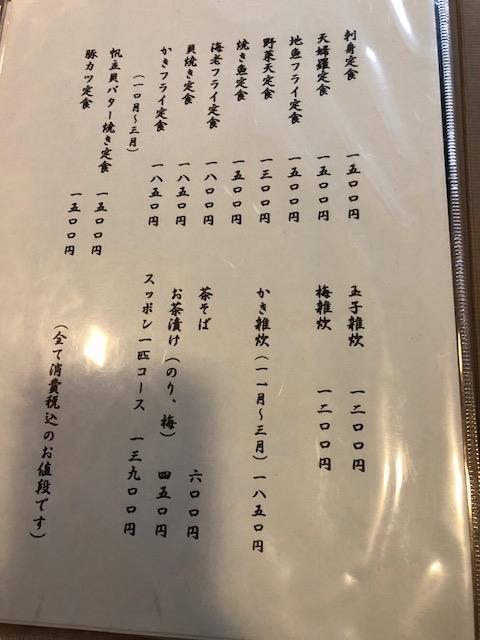 刺身定食 一五〇〇円
天婦羅定食 一五〇〇円
地魚フライ定食 一五〇〇円
野菜天定食 一三〇〇円
焼き魚定食 一五〇〇円
海老フライ定食 一八〇〇円
貝焼き定食 一八五〇円
かきフライ定食 一八五〇円
(一〇月~三月)
帆立貝バター焼き定食 一五〇〇円
豚カツ定食 一五〇〇円
玉子雑炊 一二〇〇円
梅雑炊 一二〇〇円
かき雑炊(一一月~三月)一八五〇円
茶そば 六〇〇円
お茶漬け(のり、梅) 四五〇円
スッポン一匹コース 一三九〇〇円
(全て消費税込のお値段です)